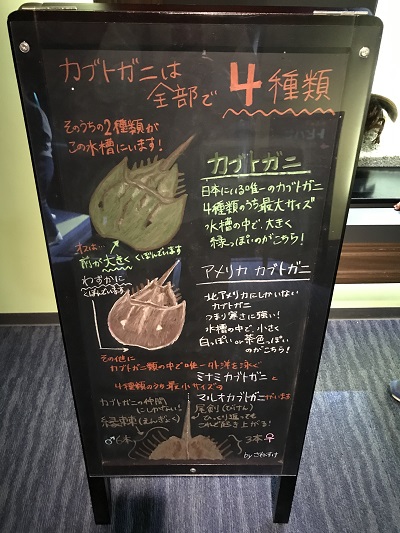 カブトガニは
全部で 4種類
そのうちの2種類が
この水槽にいます!
カブトガニ
日本にいる唯一のカブトガニ
4種類のうち最大サイズ
水槽の中で、大きく
緑っぽいのがこちら!
オスは…
前が大きくくぼんでいます
わずかに
くぼんでいます
アメリカ カブトガニ
北アメリカにしかいない
カブトガニ
つまり寒さに強い!
水槽の中で、小さく
白っぽい or 茶色っぽい
のがこちら!
その他に
カブトガニ類の中で唯一外洋を泳ぐ
ミナミカブトガニと
4種類のうち最小サイズの
マルオカブトガニがいます
カブトガニの仲間
にしかない!
尾剣(びけん)
ひっくり返っても
これで起き上がる!
♂6本
3本♀
by